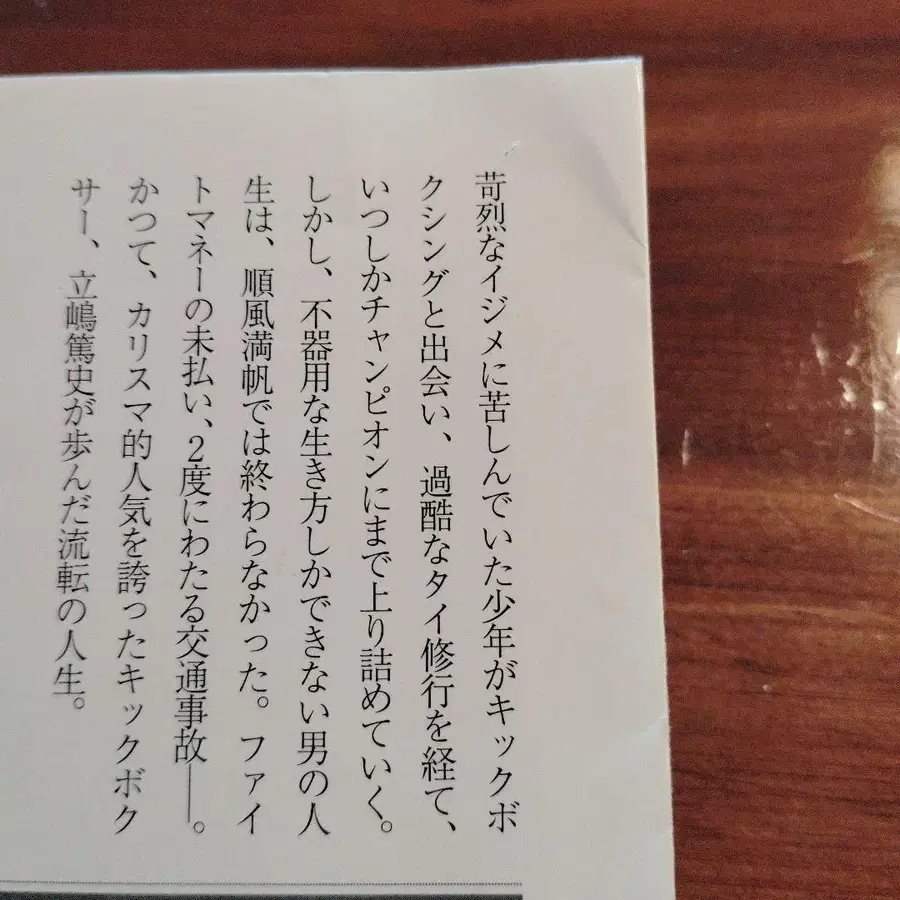 苛烈なイジメに苦しんでいた少年がキックボ
クシングと出会い、過酷なタイ修行を経て、
いつしかチャンピオンにまで上り詰めていく。
しかし、不器用な生き方しかできない男の人
生は、順風満帆では終わらなかった。ファイ
トマネーの未払い、2度にわたる交通事故——。
かつて、カリスマ的人気を誇ったキックボク
サー、立嶋篤史が歩んだ流転の人生。